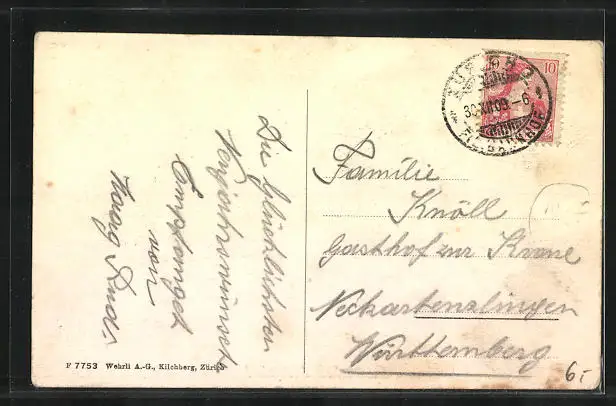 Die Glücklichsten
Neujahrswünsche
Empfanget
von
10
30.XII.09.-6
Familie
Knöll
Gasthof zur Krone
Neckartenzlingen
Württemberg
F 7753 Wehrli A.-G., Kilchberg, Zürich
6.-